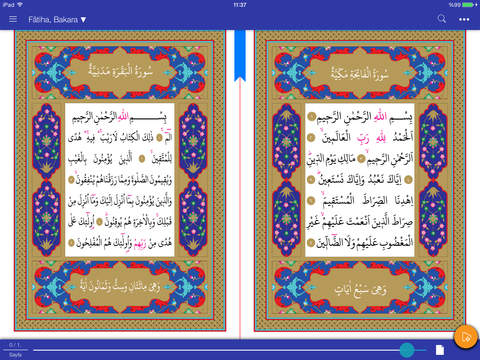 iPad 11:37 %99
Fâtiha, Bakara ▼
سُورَةُ الْفَاتِحَةِ مَكِّيَّةٌ
بِسْــــمِ اللّٰهِ الرَّحْمٰنِ الرَّحِيمِ
اَلْحَمْدُ لِلّٰهِ رَبِّ الْعَالَمِينَ
اَلرَّحْمٰنِ الرَّحِيمِ مَالِكِ يَوْمِ الدِّينِ
اِيَّاكَ نَعْبُدُ وَاِيَّاكَ نَسْتَعِينُ
اِهْدِنَا الصِّرَاطَ الْمُسْتَقِيمَ
صِرَاطَ الَّذِينَ اَنْعَمْتَ عَلَيْهِمْ غَيْرِ
الْمَغْضُوبِ عَلَيْهِمْ وَلَا الضَّالِّينَ
وَهِيَ سَبْعُ اٰيَاتٍ
سُورَةُ الْبَقَرَةِ مَدَنِيَّةٌ
بِسْــــمِ اللّٰهِ الرَّحْمٰنِ الرَّحِيمِ
الٓمٓ ذٰلِكَ الْكِتَابُ لَا رَيْبَ فِيهِ هُدًى
لِلْمُتَّقِينَ اَلَّذِينَ يُؤْمِنُونَ بِالْغَيْبِ
وَيُقِيمُونَ الصَّلٰوةَ وَمِمَّا رَزَقْنَاهُمْ يُنْفِقُونَ
وَالَّذِينَ يُؤْمِنُونَ بِمَٓا اُنْزِلَ اِلَيْكَ وَمَٓا اُنْزِلَ مِنْ
قَبْلِكَ وَبِالْاٰخِرَةِ هُمْ يُوقِنُونَ اُو۬لٰٓئِكَ عَلٰى
هُدًى مِنْ رَبِّهِمْ وَاُو۬لٰٓئِكَ هُمُ الْمُفْلِحُونَ
وَهِيَ مِائَتَانِ وَسِتٌّ وَثَمَانُونَ اٰيَةً
0 / 1.
Sayfa